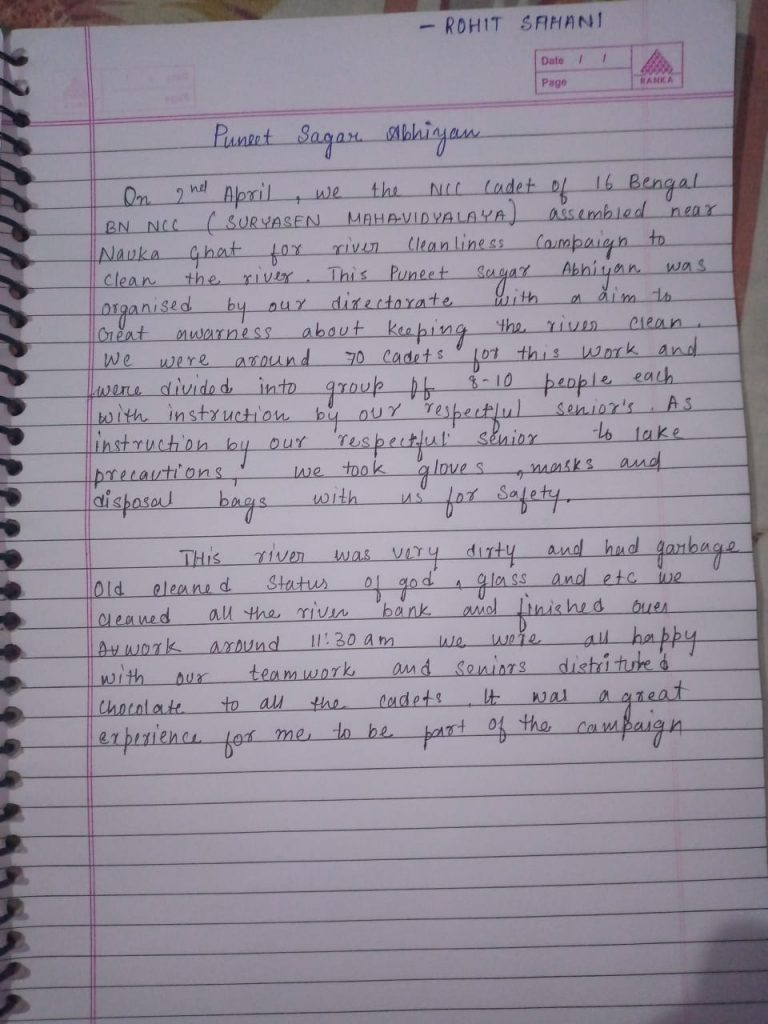 - ROHIT SAHANI
Date / /
Page
RANKA
Puneet Sagar Abhiyan
On 2nd April, we the NCC Cadet of 16 Bengal
BN NCC (SURYASEN MAHAVIDYALAYA) assembled near
Nauka Ghat for river Cleanliness Campaign to
Clean the river. This Puneet Sagar Abhiyan was
organised by our directorate with a aim to
Creat awarness about keeping the river clean.
We were around 70 Cadets for this work and
were divided into group of 8-10 people each
with instruction by our respectful senior's. As
instruction by our respectful senior to take
precautions, we took gloves, masks and
disposal bags with us for Safety.
THis river was very dirty and had garbage
Old cleaned Status of god, glass and etc we
cleaned all the river bank and finished over
work around 11:30 am we were all happy
with our teamwork and seniors distributed
chocolate to all the cadets. It was a great
experience for me to be part of the campaign